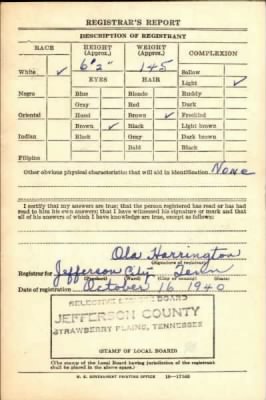 REGISTRAR'S REPORT
DESCRIPTION OF REGISTRANT
RACE HEIGHT (Approx.) WEIGHT (Approx.) COMPLEXION
White ✓ 6'2" 145 Sallow
EYES HAIR Light ✓
Negro Blue Blonde Ruddy
Gray Red Dark
Oriental Hazel Brown ✓ Freckled
Brown ✓ Black Light brown
Indian Black Gray Dark brown
Bald Black
Filipino
Other obvious physical characteristics that will aid in identification None
I certify that my answers are true; that the person registered has read or has had
read to him his own answers; that I have witnessed his signature or mark and that
all of his answers of which I have knowledge are true, except as follows:
Ola Harrington
(Signature of registrar)
Registrar for Jefferson City Tenn
Date of registration October 16 1940
SELECTIVE SERVICE BOARD
JEFFERSON COUNTY
STRAWBERRY PLAINS, TENNESSEE
(STAMP OF LOCAL BOARD)
(The stamp of the Local Board having jurisdiction of the registrant
shall be placed in the above space.)
U. S. GOVERNMENT PRINTING OFFICE 16—17105